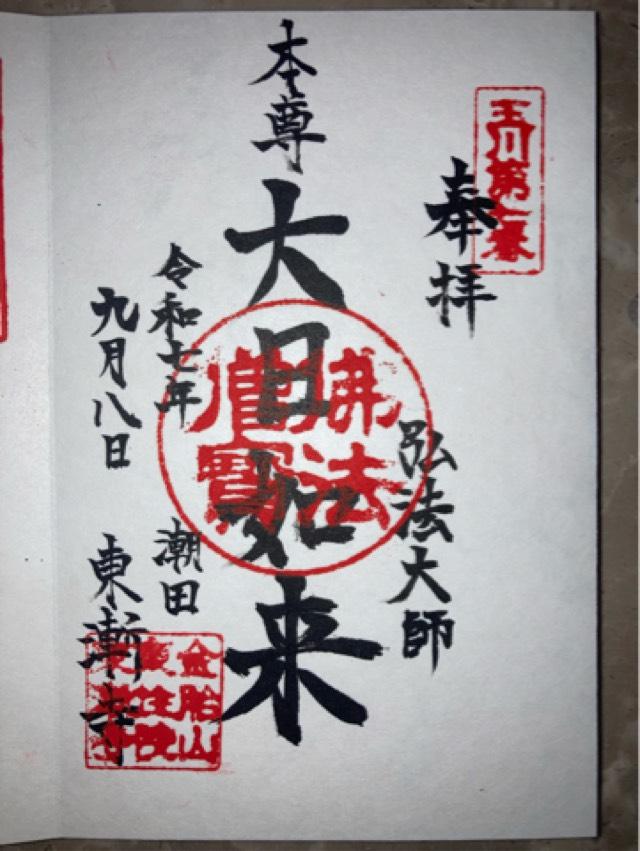 玉川第
奉拝
弘法大師
本尊
大日如来
佛法
僧寶
令和七年
九月八日
潮田
東漸寺
金胎山
東漸寺